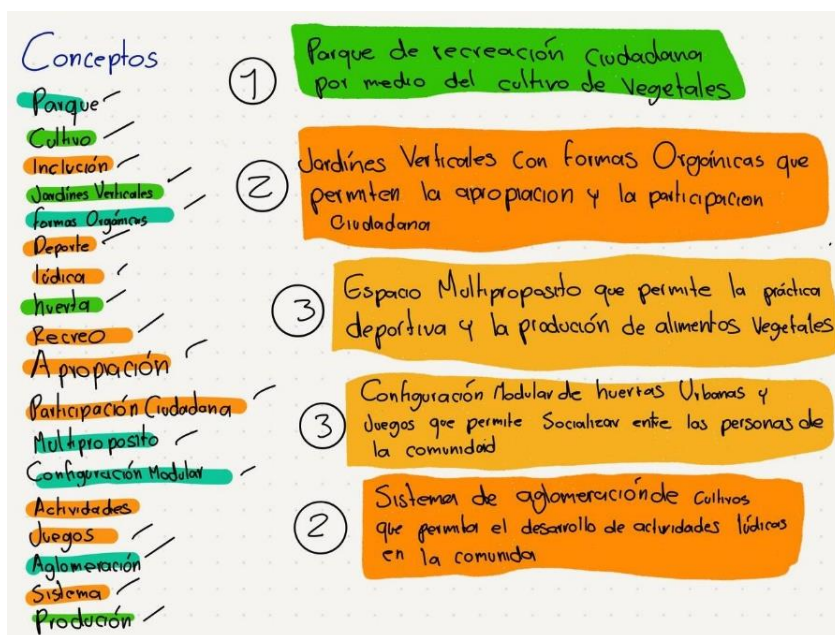 Conceptos
Parque
Cultivo
Inclución
Jardines Verticales
formas Orgánicas
Deporte
lúdica
huerta
Recreo
Apropiación
Participación Ciudadana
Multiproposito
Configuración Modular
Actividades
Juegos
Aglomeración
Sistema
Produción
1
Parque de recreación Ciudadana
por medio del cultivo de Vegetales
2
Jardínes Verticales con formas Orgánicas que
permiten la apropiacion y la participacion
Ciudadana
3
Espacio Multiproposito que permite la práctica
deportiva y la produción de alimentos Vegetales
3
Configuración Modular de huertas Urbanas y
Juegos que permite Socializar entre las personas de
la comunidad
2
Sistema de aglomeración de cultivos
que permita el desarrollo de actividades lúdicas
en la comunida